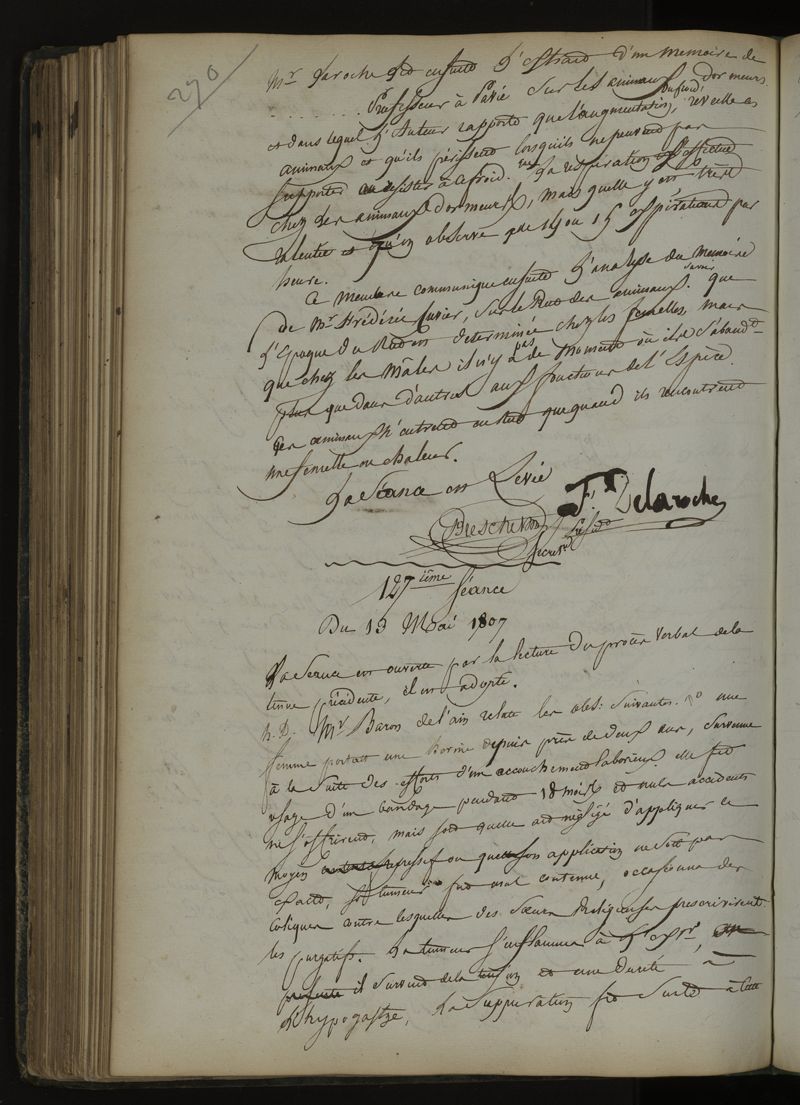 270
Mr Laroche fit ensuite l'extrait d'un memoire de
......... Professeur à Pavie sur les animaux dormeurs
et dans lequel l'Auteur rapporte que l'augmentation du froid, reveille ces
animaux et qu'ils périssent lorsqu'ils ne peuvent pas
supporter ce froid. la respiration
chez les animaux dormeurs, mais quelle y est très
ralentie qu'on observe que 14 ou 15 aspirations par
heure.
Ce membre communique ensuite l'analyse du Memoire
de Mr Frédéric Cuvier, sur le Rut des animaux. savoir que
l'Epoque du Rut est determinée chez les femelles, mais
que chez les Mâles il n'y a pas de moment où ils s'abandt
plus que dans d'autres aux fonctions de l'Espèce.
Les animaux n'entrent en Rut que quand ils rencontrent
une femelle en chaleur.
La Séance est Levée
F. Delaroche
Président
Secret.
127ième Séance
Du 13 Mai 1807
La Séance est ouverte par la lecture du procès verbal de la
tenue précédente, il est adopté.
h. D. Mr Baron de l'ain relate les obs: suivantes. 1o une
femme portait une hernie depuis près de deux ans, survenue
à la suite des efforts d'un accouchement laborieux. elle fit
usage d'un bandage pendant 18 mois et nuls accidents
ne s'offrirent, mais soit quelle ait négligé d'appliquer ce
moyen ou que son application ne soit pas
exacte, la tumeur fut mal contenue, occasionna des
coliques contre lesquelles des Sœurs Religieuses prescrivirent
les purgatifs. La tumeur s'enflamma à l'extr,
il survint de la tension et une dureté à
L'hypogastre, la suppuration fit suite à cette